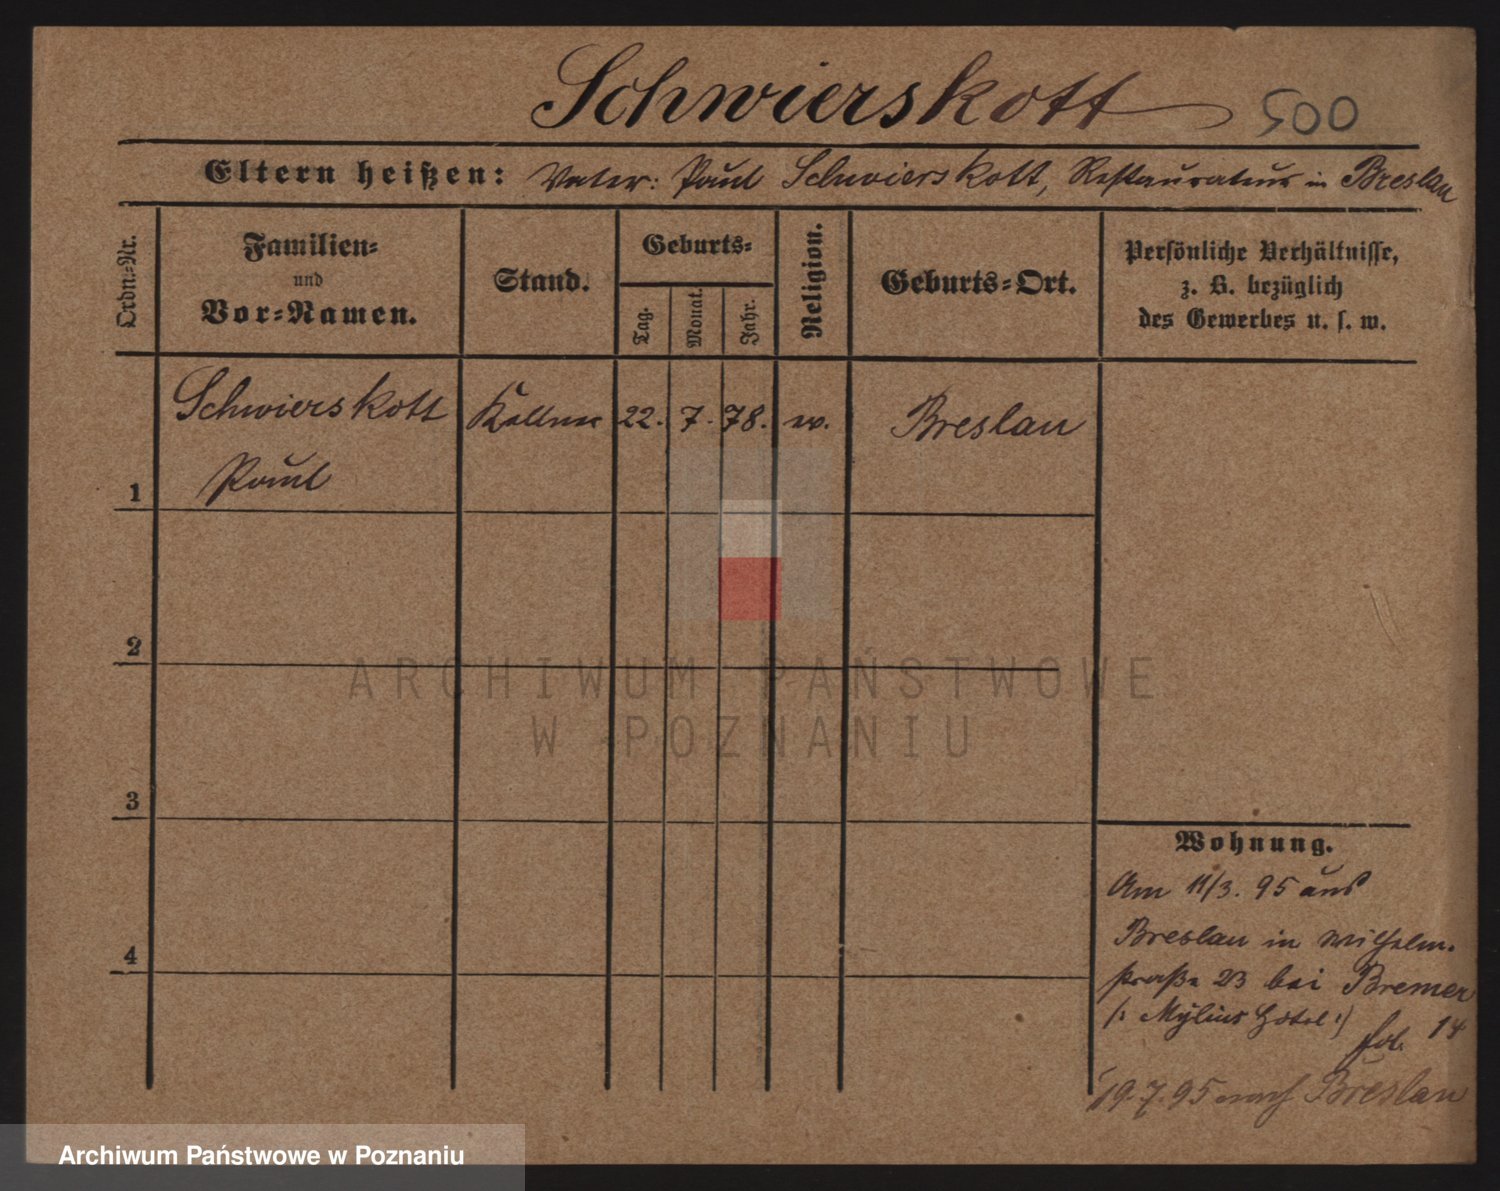 Schwierskott 500
Eltern heißen: Vater: Paul Schwierskott, Restaurateur in Breslau
Ordn.-Nr.
Familien-
und
Vor-Namen.
Stand.
Geburts-
Tag.
Monat.
Jahr.
Religion.
Geburts-Ort.
Persönliche Verhältnisse,
z. B. bezüglich
des Gewerbes u. s. w.
Schwierskott Kellner 22. 7. 78. ev. Breslau
Paul
1
2
ARCHIWUM PAŃSTWOWE
W POZNANIU
3
4
Wohnung.
Am 11/3. 95 aus
Breslau in Wilhelm-
straße 23 bei Bremer
(: Mylius Hotel :)
fol. 14
19.7.95 nach Breslau
Archiwum Państwowe w Poznaniu